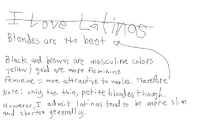 I Love Latinas
Blondes are the best
Black and brown are masculine colors
yellow & gold are more feminine
feminine = more attractive to males. Therefore
Note: only the thin, petite blondes though.
However, I admit latinas tend to be more slim
and shorter generally.